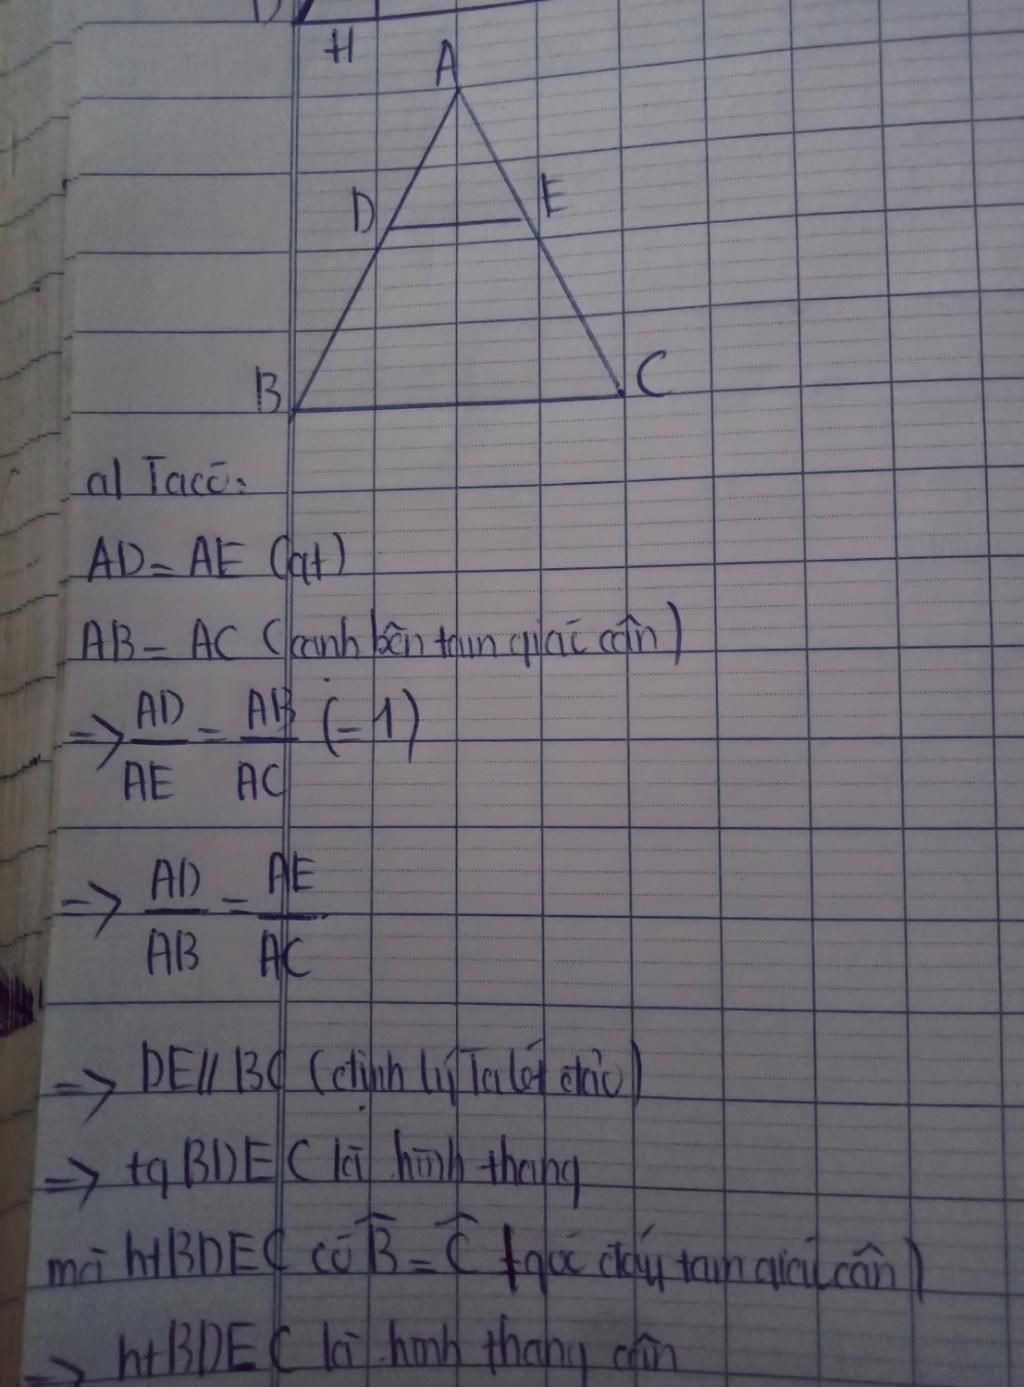 H
A
D E
B C
a/ Ta có:
AD = AE (gt)
AB = AC (cạnh bên tam giác cân)
=> AD/AE = AB/AC (=1)
=> AD/AB = AE/AC
=> DE // BC (định lý Ta lét đảo)
=> tg BDEC là hình thang
mà ht BDEC có B̂ = Ĉ (góc đáy tam giác cân)
=> ht BDEC là hình thang cân